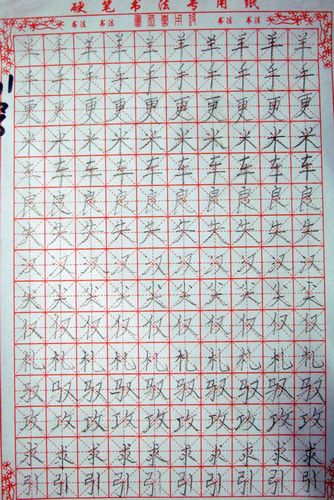 硬笔书法专用纸
书法 书法 书法 书法
羊羊羊羊羊羊羊羊羊羊
手手手手手手手手手手
更更更更更更更更更更
米米米米米米米米米米
车车车车车车车车车车
良良良良良良良良良良
失失失失失失失失失失
汉汉汉汉汉汉汉汉汉汉
尖尖尖尖尖尖尖尖尖尖
仅仅仅仅仅仅仅仅仅仅
札札札札札札札札札札
驭驭驭驭驭驭驭驭驭驭
攻攻攻攻攻攻攻攻攻攻
求求求求求求求求求求
引引引引引引引引引引